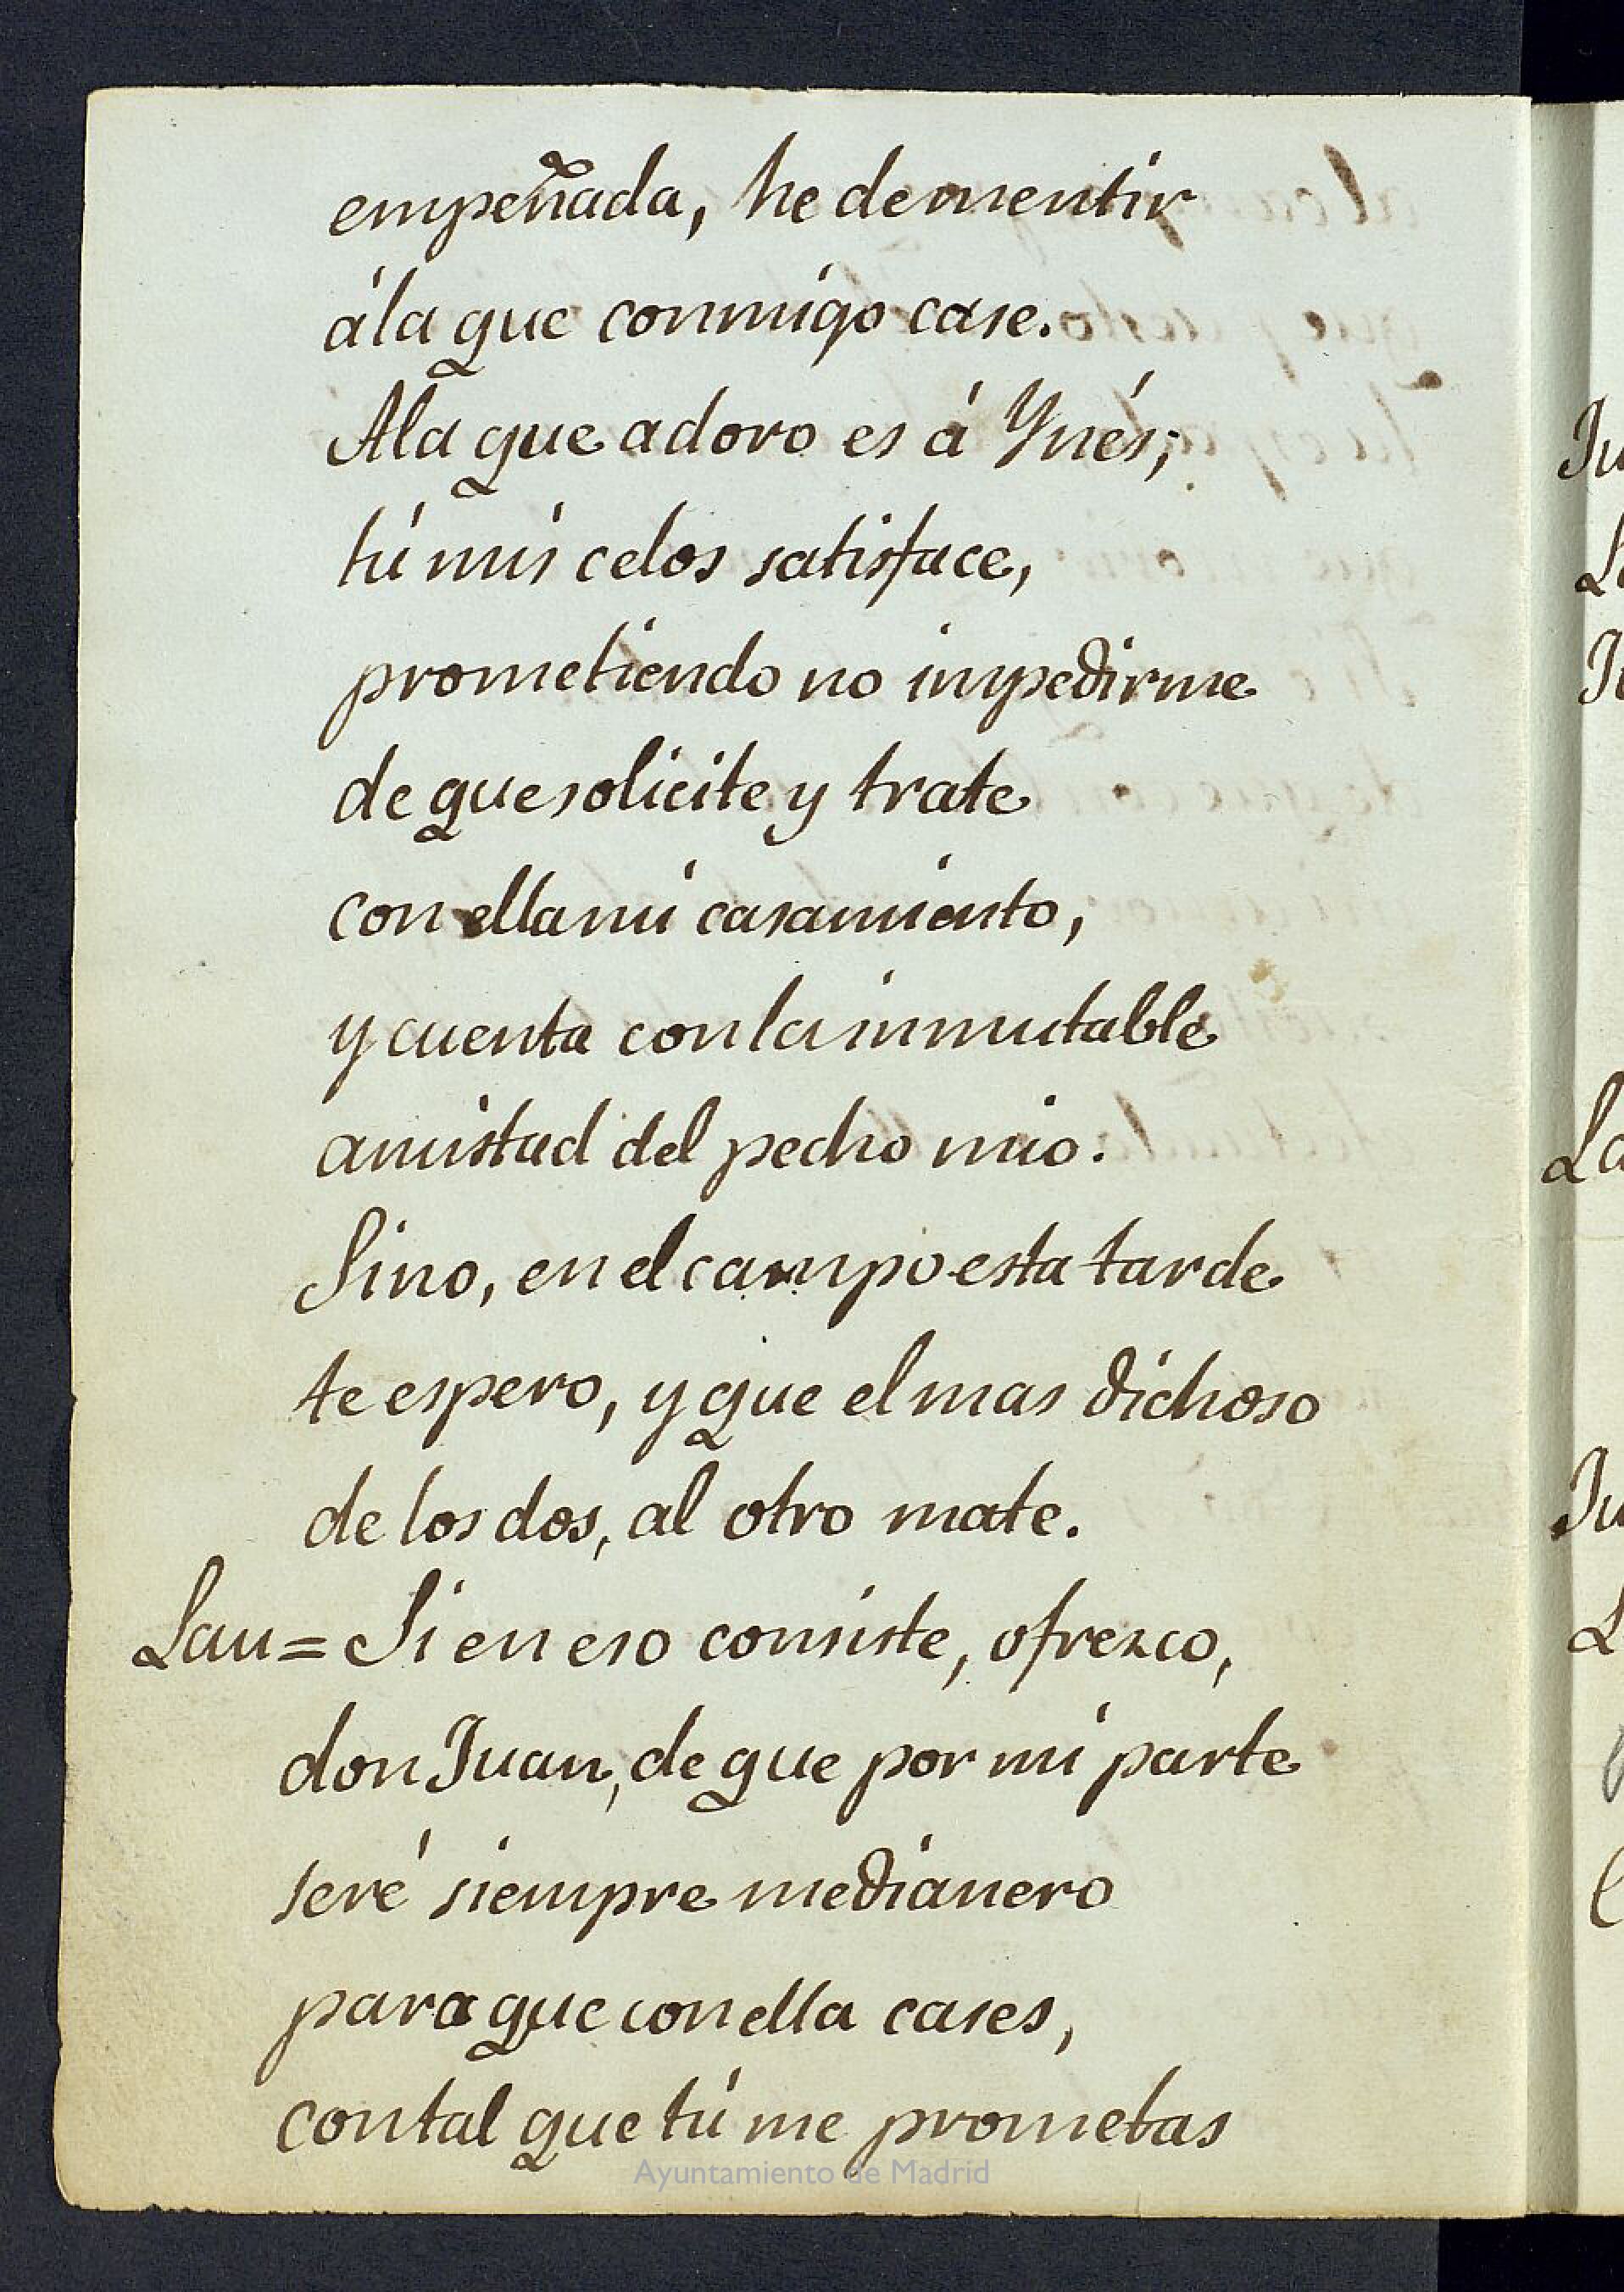 empeñada, he de mentir
á la que conmigo case.
A la que adoro es á Ynés;
tú mis celos satisface,
prometiendo no impedirme
de que solicite y trate
con ella mi casamiento,
y cuenta con la inmutable
amistad del pecho mio.
Sino, en el campo esta tarde
te espero, y que el mas dichoso
de los dos, al otro mate.
Lau= Si en eso consiste, ofrezco,
don Juan, de que por mi parte
seré siempre medianero
para que con ella cases,
con tal que tú me prometas
Ayuntamiento de Madrid